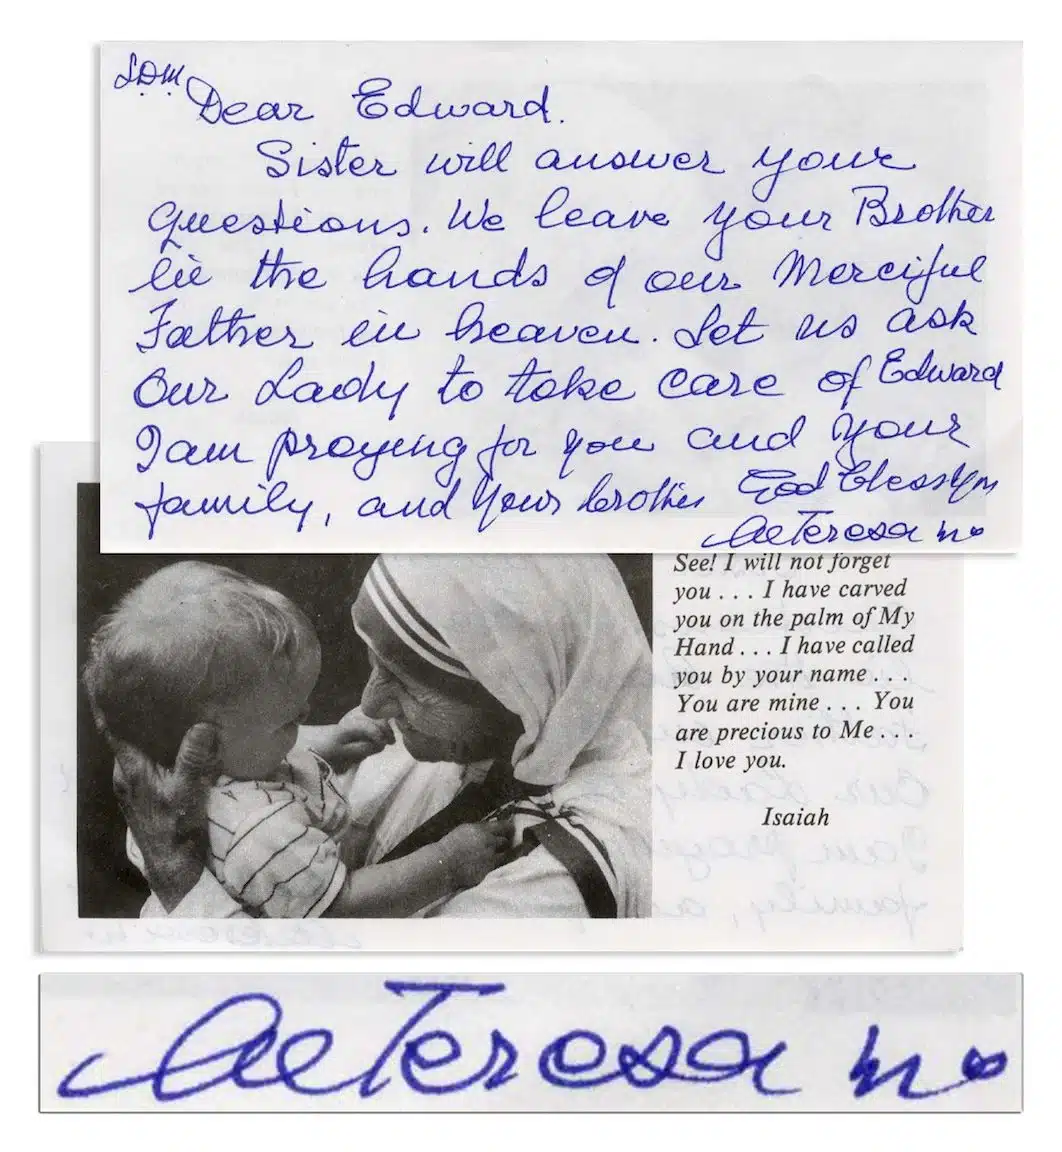 LDM
Dear Edward.
Sister will answer your
questions. We leave your Brother
in the hands of our Merciful
Father in heaven. Let us ask
Our Lady to take care of Edward
I am praying for you and your
family, and your brother God bless you
M Teresa mc
See! I will not forget
you . . . I have carved
you on the palm of My
Hand . . . I have called
you by your name . . .
You are mine . . . You
are precious to Me . . .
I love you.
Isaiah
M Teresa mc